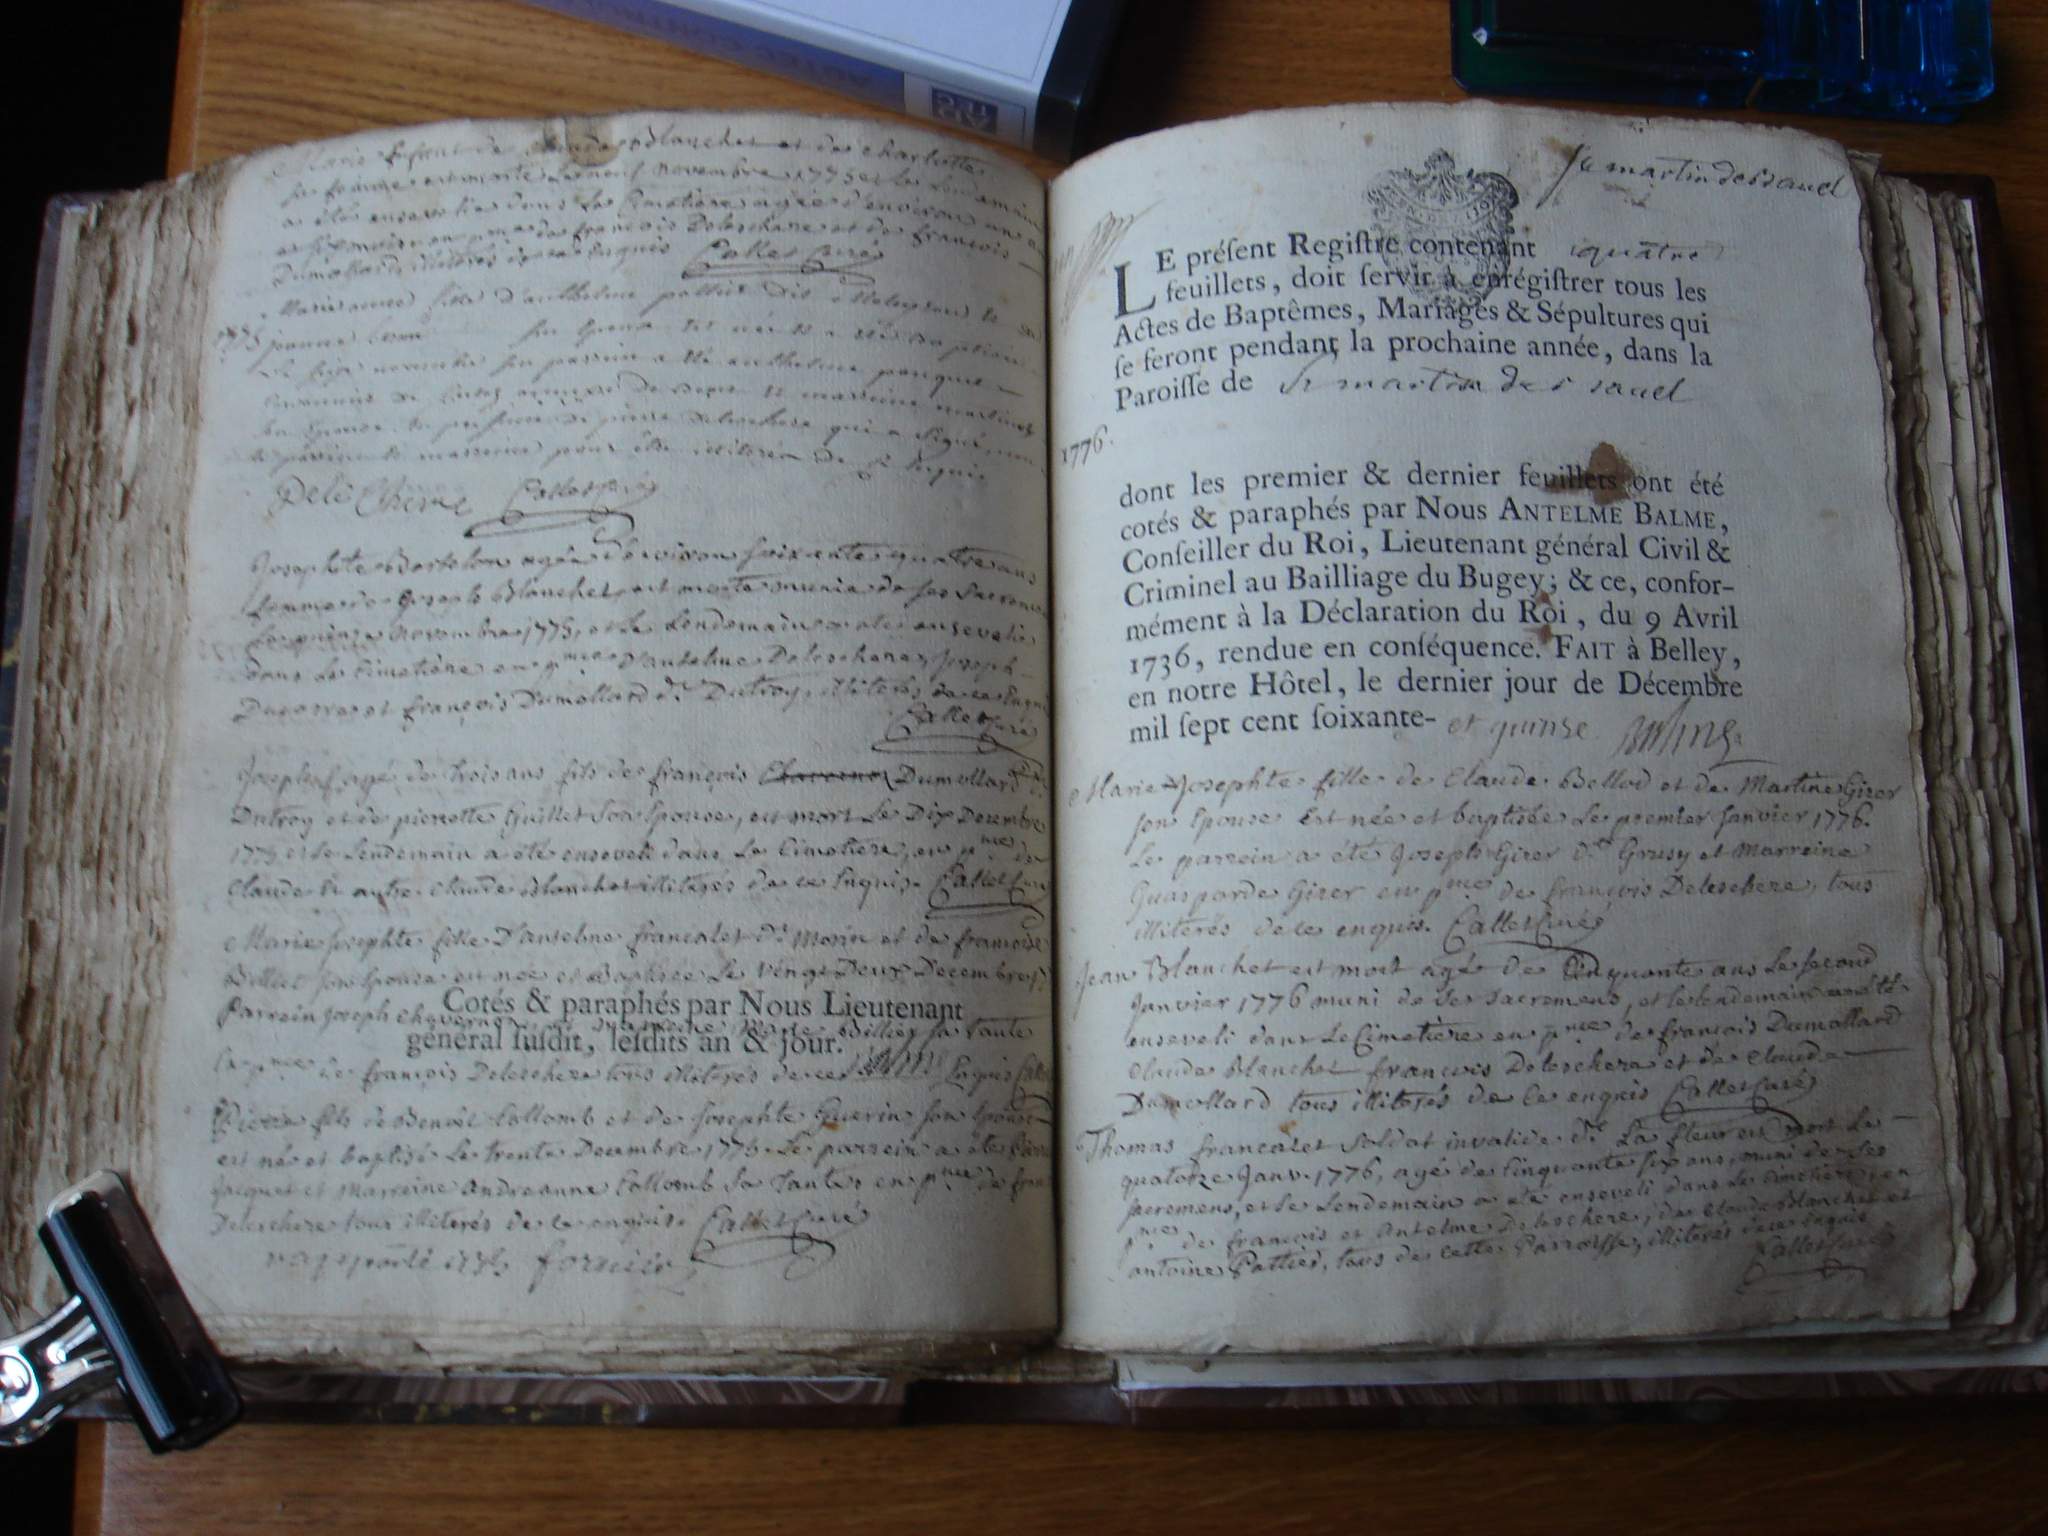 Marie Enfant de Blanchet et de charlotte
sa femme est morte Le neuf novembre 1775 et le Lendemain
a été ensevelie dans Le Cimetière agée d'environ un an
en pnce de françois Deleschere et de françois
Dumollard illiterés de ce enquis Callet Curé
1775
Marie fille d'anthelme pattier dit
jeanne son Epouse est née et a été baptisée
Le seize novembre son parrein a été anthelme
de et marreine
son Epouse en présence de pierre deleschere qui a signé, non
le parrein et marreine pour être illiterés de ce enquis
Delescherre Callet Curé
Josephte Bertelon agée d'environ soixante quatre ans
femme de Joseph Blanchet est morte munie de ses Sacremens
Le quinze novembre 1775, et Le Lendemain a été ensevelie
dans Le Cimetière en pnce d'anselme Deleschere, Joseph
et françois Dumollard dt Dutroy, illiterés de ce Enquis
Callet Curé
Joseph agé de trois ans fils de françois Chavernoz Dumollard dt
Dutroy et de pierrette Guillet son Epouse, est mort Le Dix Decembre
1775 et Le Lendemain a été enseveli dans Le Cimetière, en pnce de
Claude et autre Claude Blanchet illiterés de ce Enquis. Callet Curé
Marie Josephte fille D'anselme francalet dt Morin et de françoise
Billiet son Epouse est née et Baptisée Le vingt Deux Decembre
Cotés & paraphés par Nous Lieutenant
Parrein Joseph chavernoz et marreine Marie Billiet sa tante
général susdit, lesdits an & jour.
En pnce de françois Deleschere tous illiterés de ce Enquis Callet
Pierre fils de Benoît Collomb et de Josephte Guerin son Epouse
est né et baptisé Le trente Decembre 1775. Le parrein a été Pierre
Jacquet et Marreine Andreanne Collomb Sa Tante, en pnce de fran
Deleschere tous illiterés de ce enquis. Callet Curé
rapporté
St martin de bavel
LE préſent Regiſtre contenant quatre
feuillets, doit ſervir à enrégiſtrer tous les
Actes de Baptêmes, Mariages & Sépultures qui
ſe feront pendant la prochaine année, dans la
Paroiſſe de St martin de bavel
1776.
dont les premier & dernier feuillets ont été
cotés & paraphés par Nous ANTELME BALME,
Conſeiller du Roi, Lieutenant général Civil &
Criminel au Bailliage du Bugey; & ce, confor-
mément à la Déclaration du Roi, du 9 Avril
1736, rendue en conſéquence. FAIT à Belley,
en notre Hôtel, le dernier jour de Décembre
mil ſept cent ſoixante- et quinse Balme
Marie Josephte fille de Claude Bellod et de Martine Girer
son Epouse Est née et baptisée Le premier Janvier 1776.
Le parrein a été Joseph Girer dt Grusy et Marreine
Guasparde Girer en pnce de françois Deleschere, tous
illiterés de ce enquis. Callet Curé
Jean Blanchet est mort agé de Cinquante ans Le second
Janvier 1776 muni de ses Sacremens, et le Lendemain a été
enseveli dans Le Cimetière en pnce de françois Dumollard
Claude Blanchet françois Deleschere et de Claude
Dumollard tous illiterés de ce enquis Callet Curé
Thomas francalet Soldat invalide dt La fleur est mort Le
quatorze Janv. 1776, agé de Cinquante six ans, muni de ses
sacremens, et le Lendemain a été enseveli dans Le Cimetière, en
pnce de françois et Antelme Deleschere, de Claude Blanchet et
antoine Pattier, tous de cette Parroisse, illiterés de ce Enquis
Callet Curé